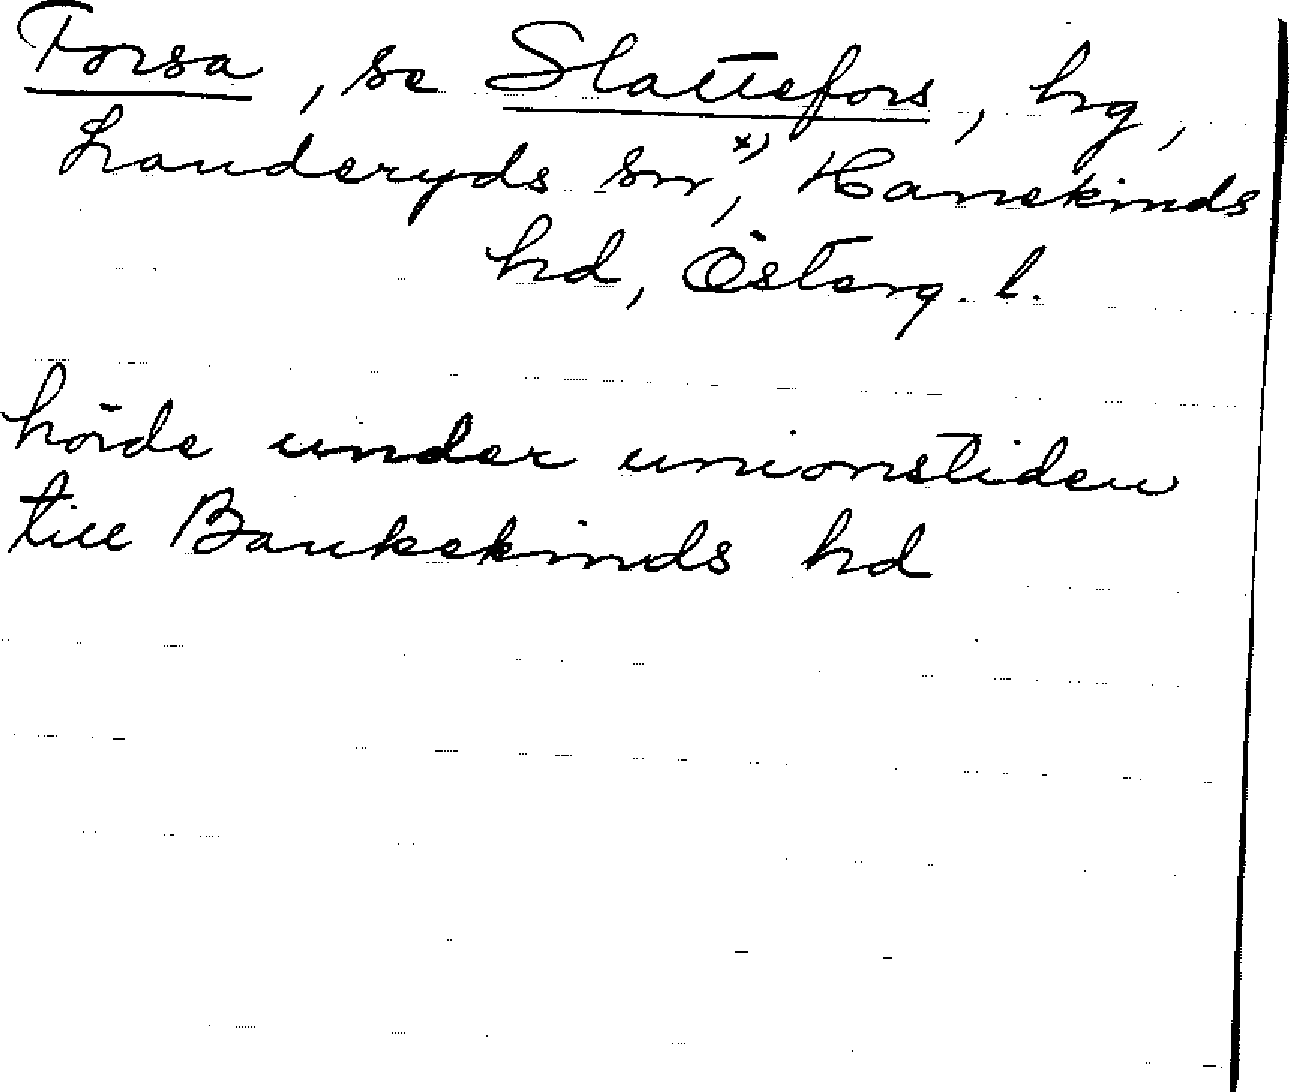 Forsa, se Slattefors, hg,
Landeryds sn, x) Hanekinds
hd, Österg. l.
hörde under unionstiden
till Bankekinds hd